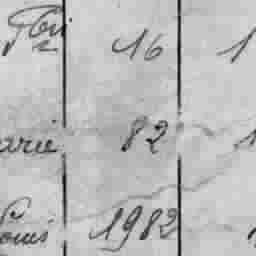 16 1
arie 82 1
Louis 1982